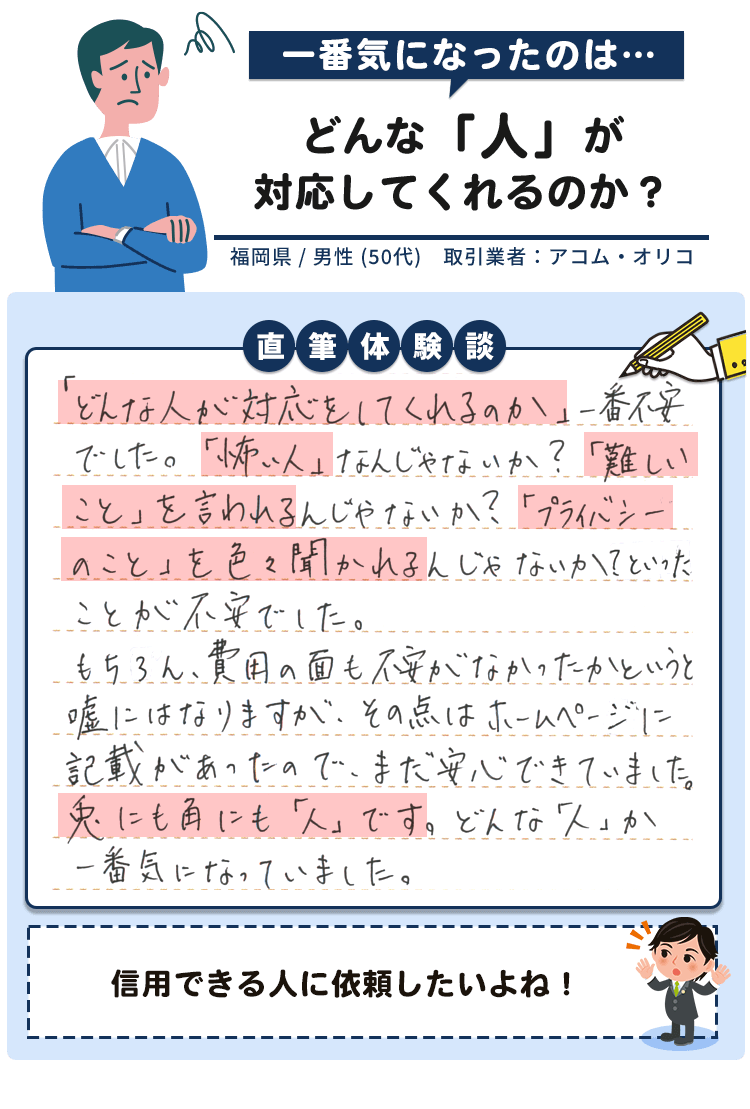 一番気になったのは…
どんな「人」が
対応してくれるのか？
福岡県 / 男性 (50代)　取引業者：アコム・オリコ
直筆体験談
「どんな人が対応をしてくれるのか」一番不安
でした。「怖い人」なんじゃないか？「難しい
こと」を言われるんじゃないか？「プライバシー
のこと」を色々聞かれるんじゃないか？といった
ことが不安でした。
もちろん、費用の面も不安がなかったかというと
嘘にはなりますが、その点はホームページに
記載があったので、まだ安心できていました。
兎にも角にも「人」です。どんな「人」か
一番気になっていました。
信用できる人に依頼したいよね！